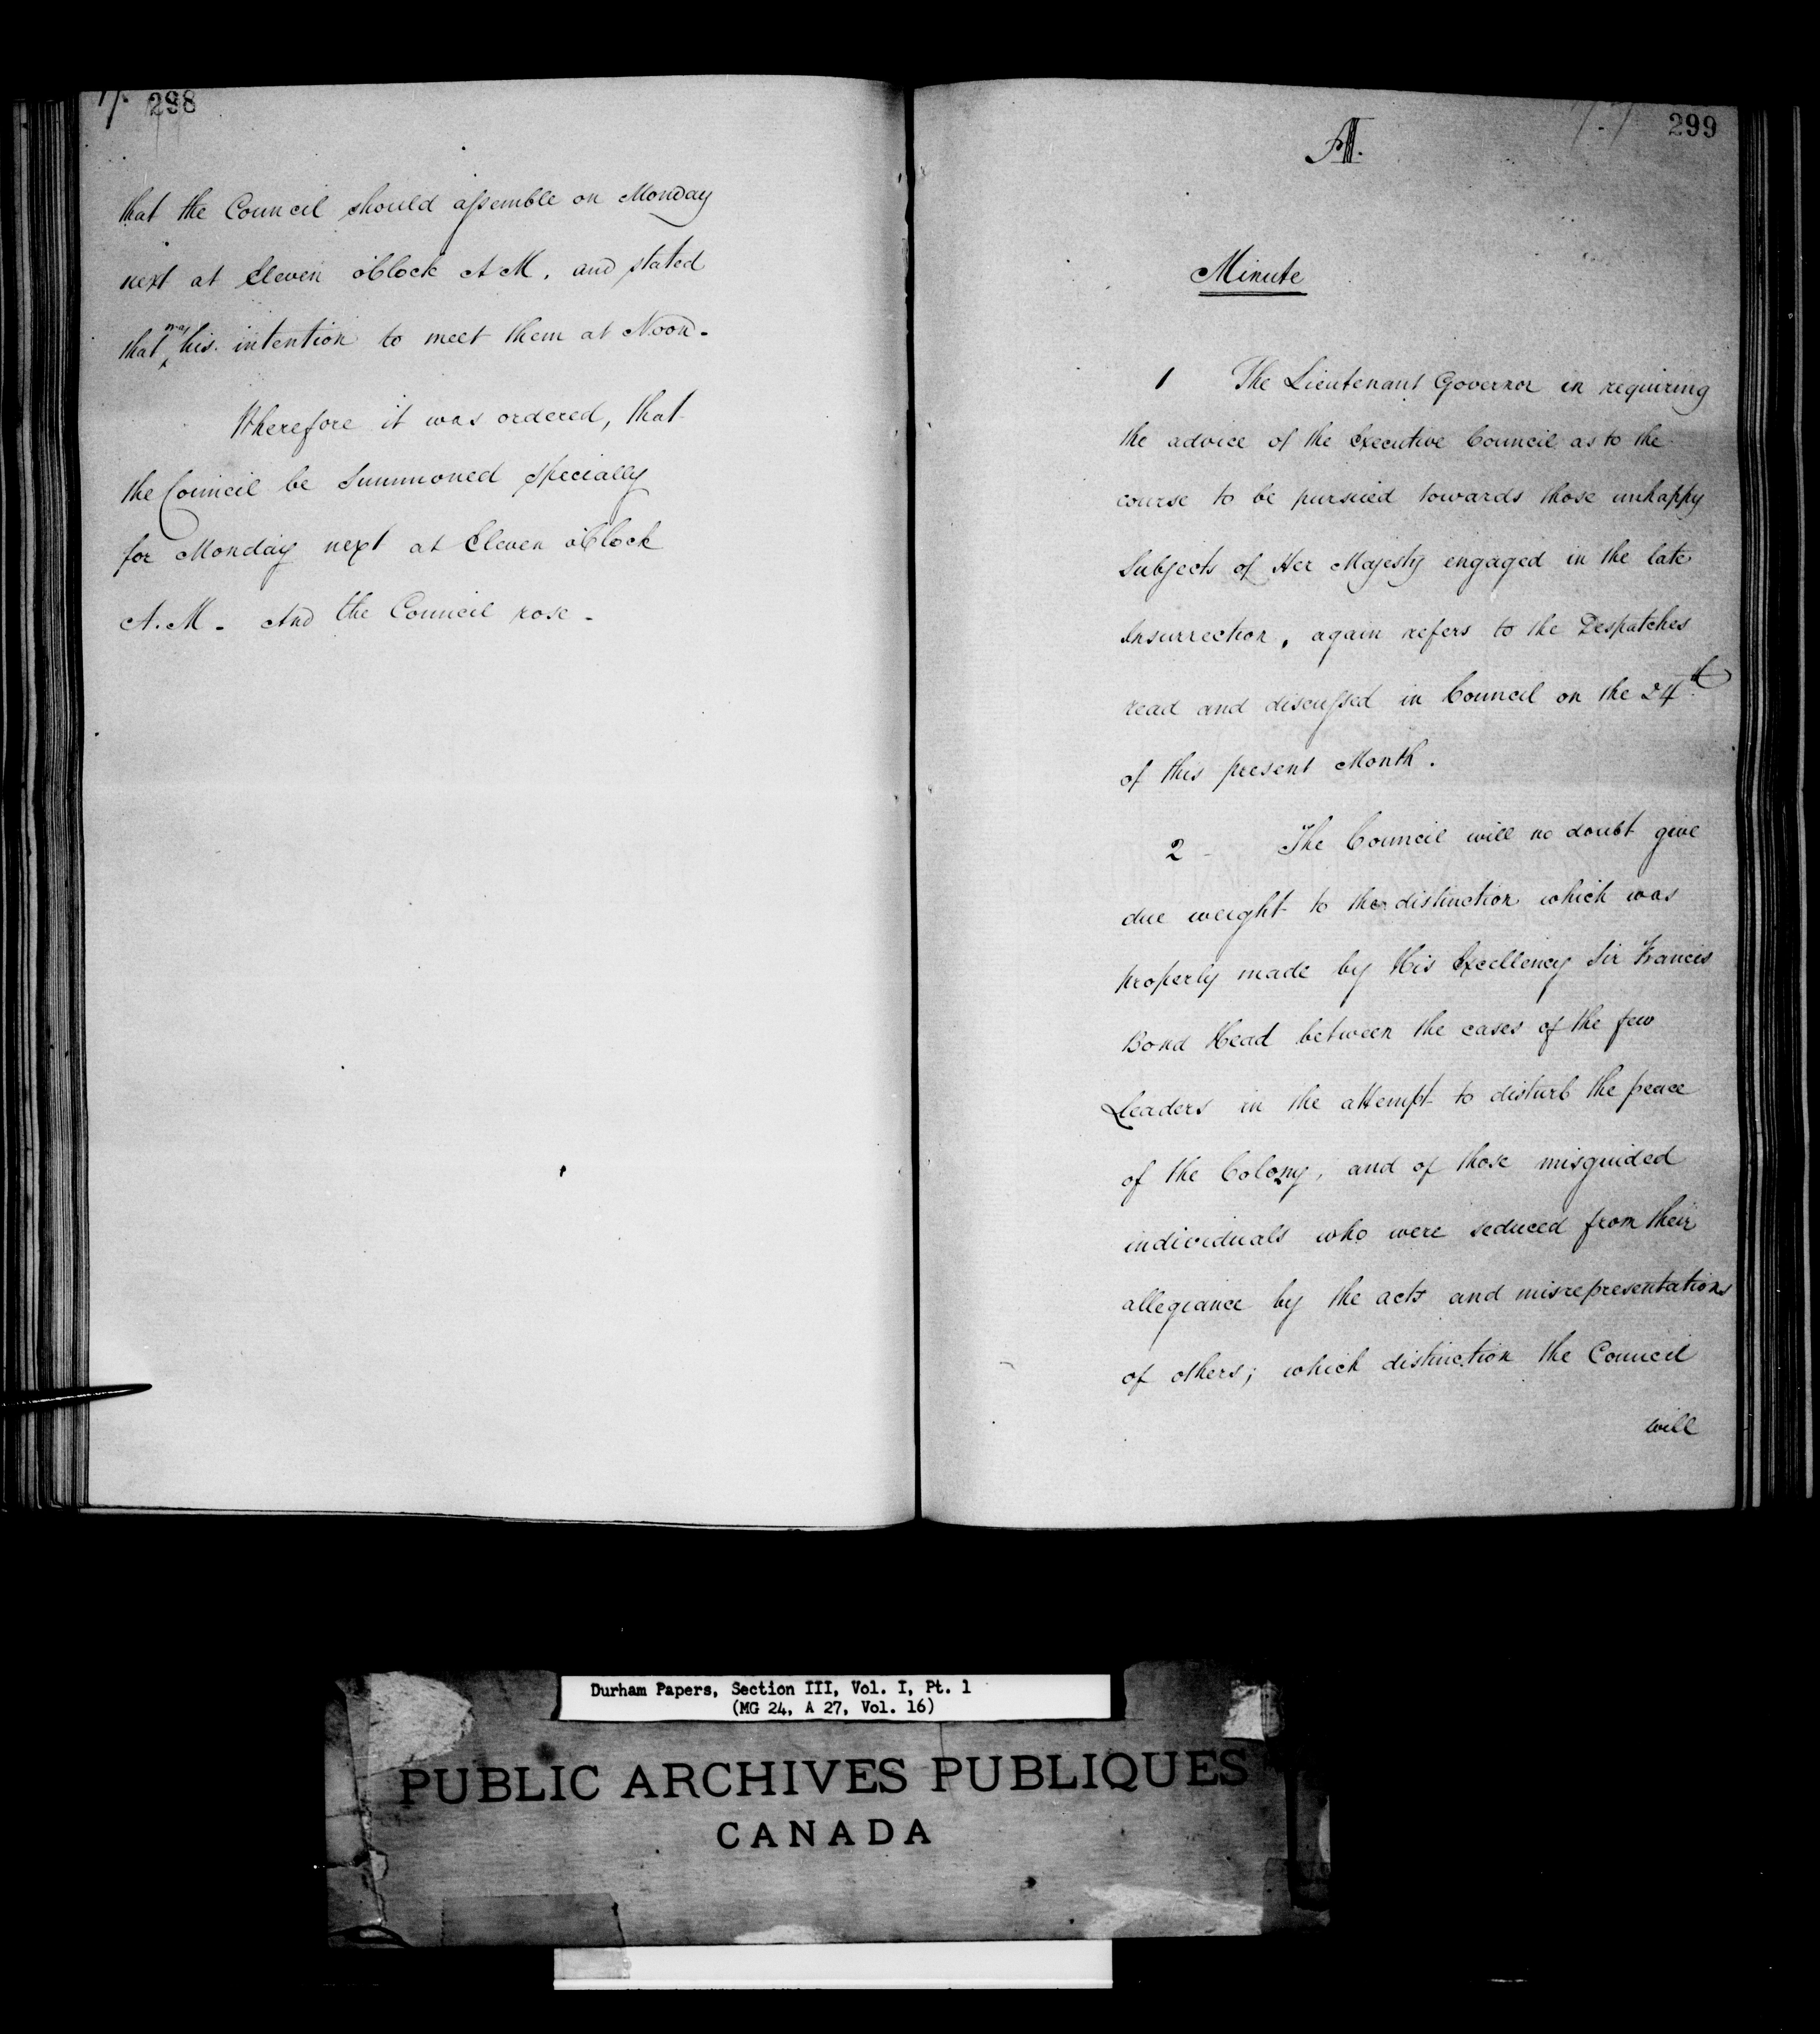 298
that the Council should assemble on Monday
next at Eleven oClock A M. and stated
that was his intention to meet them at Noon.
Wherefore it was ordered, that
the Council be Summoned specially
for Monday next at Eleven oClock
A.M. And the Council rose.
299
A.
Minute
1 The Lieutenant Governor in requiring
the advice of the Executive Council as to the
course to be pursued towards those unhappy
Subjects of Her Majesty engaged in the late
Insurrection, again refers to the Despatches
read and discussed in Council on the 24th
of this present Month.
2 - The Council will no doubt give
due weight to the distinction which was
properly made by His Excellency Sir Francis
Bond Head between the cases of the few
Leaders in the attempt to disturb the peace
of the Colony, and of those misguided
individuals who were seduced from their
allegiance by the acts and misrepresentations
of others; which distinction the Council
will
Durham Papers, Section III, Vol. I, Pt. 1
(MG 24, A 27, Vol. 16)
PUBLIC ARCHIVES PUBLIQUES
CANADA